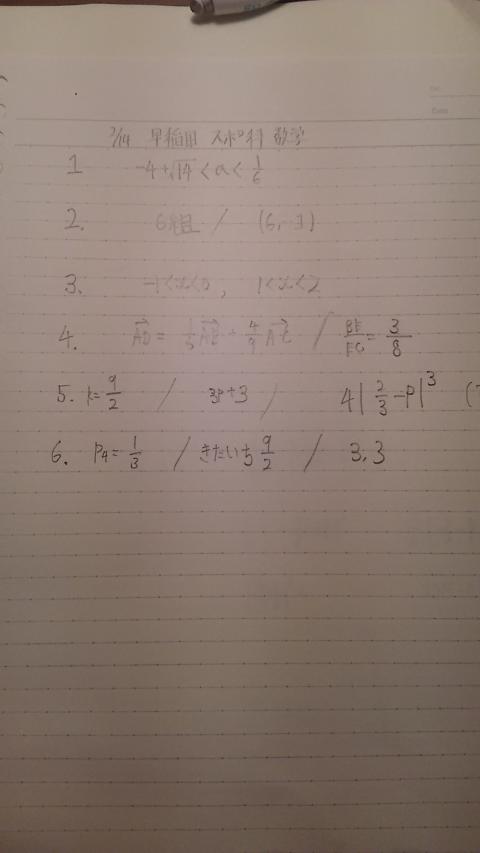 2/14 早稲田 スポ科 数学
1 -4+√14<a<1/6
2. 6組 / (6, -3)
3. -1<x<0, 1<x<2
4. AD→ = 1/3 AB→ + 4/9 AC→ / BF/FC = 3/8
5. k=9/2 / 3p+3 / 4|2/3-p|^3
6. P4=1/3 / きたいち 9/2 / 3.3